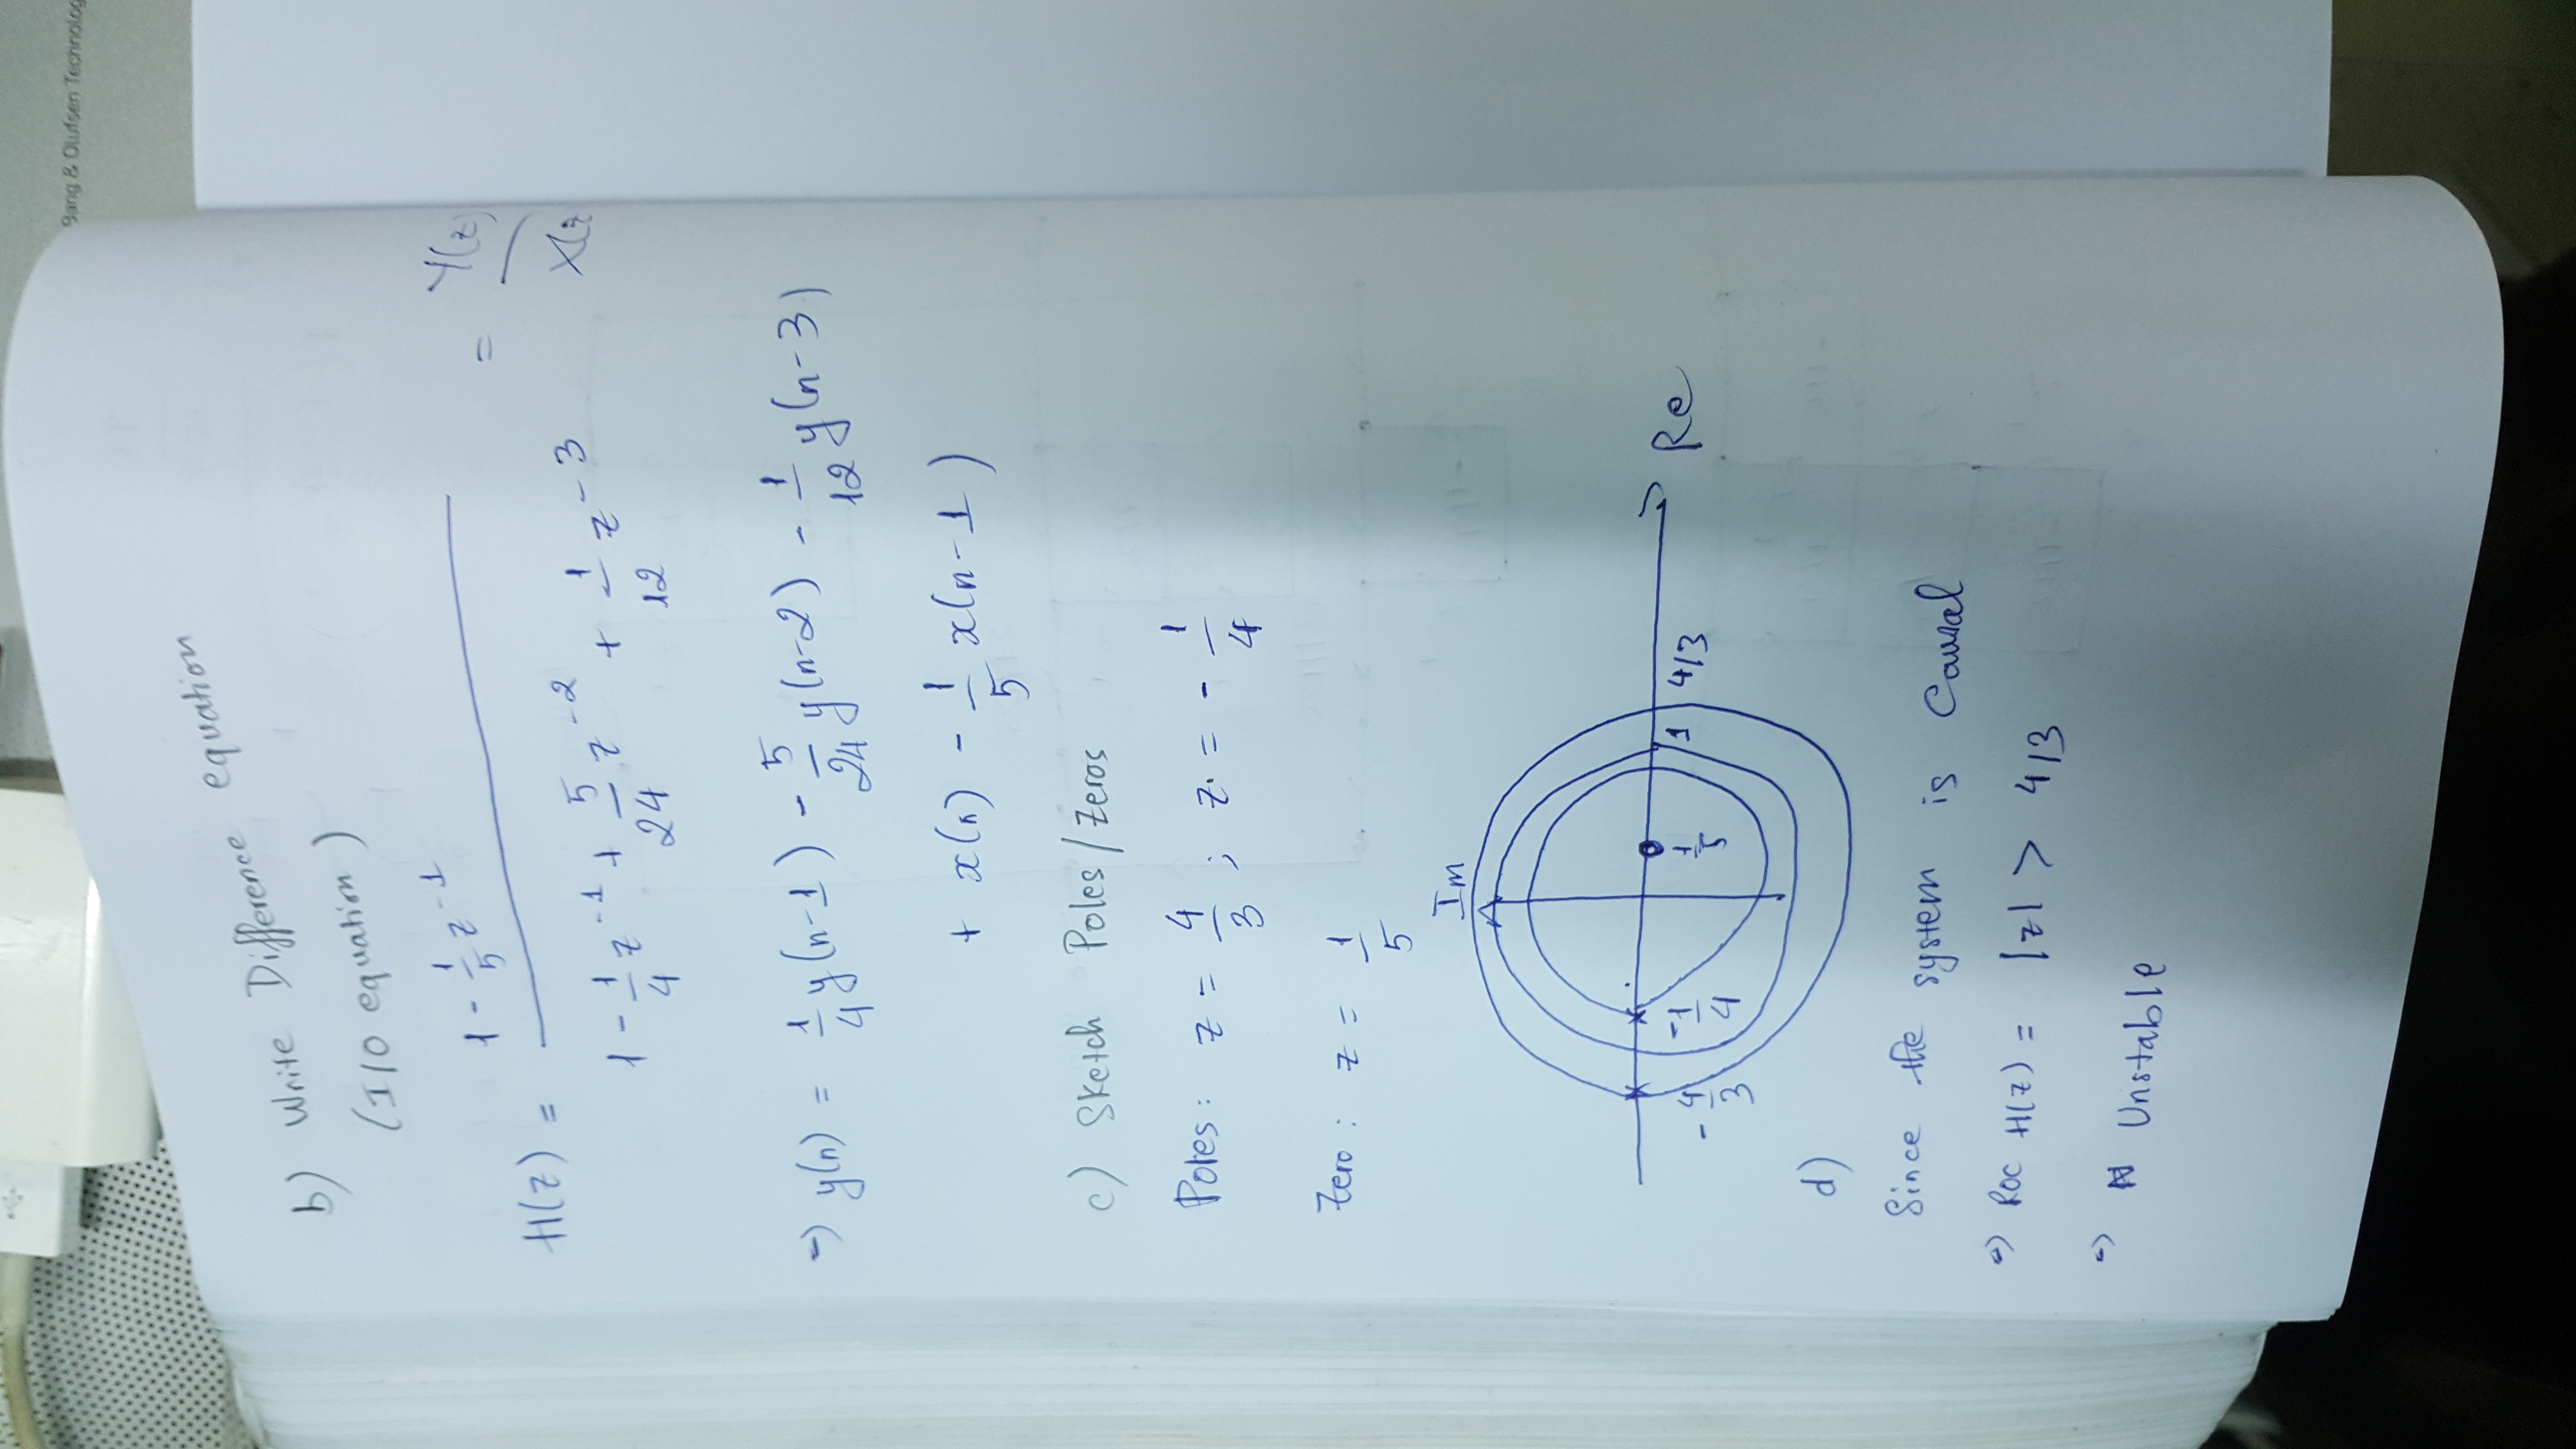 Bang & Olufsen Technolog
b) Write Difference equation
(I/O equation)
H(z) = (1 - 1/5 z^-1) / (1 - 1/4 z^-1 + 5/24 z^-2 + 1/12 z^-3) = Y(z) / X(z
=> y(n) = 1/4 y(n-1) - 5/24 y(n-2) - 1/12 y(n-3)
+ x(n) - 1/5 x(n-1)
c) Sketch Poles/Zeros
Poles: z = 4/3 ; z = - 1/4
Zero: z = 1/5
Im
-4/3 -1/4 1/5 1 4/3 Re
d)
Since the system is Causal
=> ROC H(z) = |z| > 4/3
=> Unstable